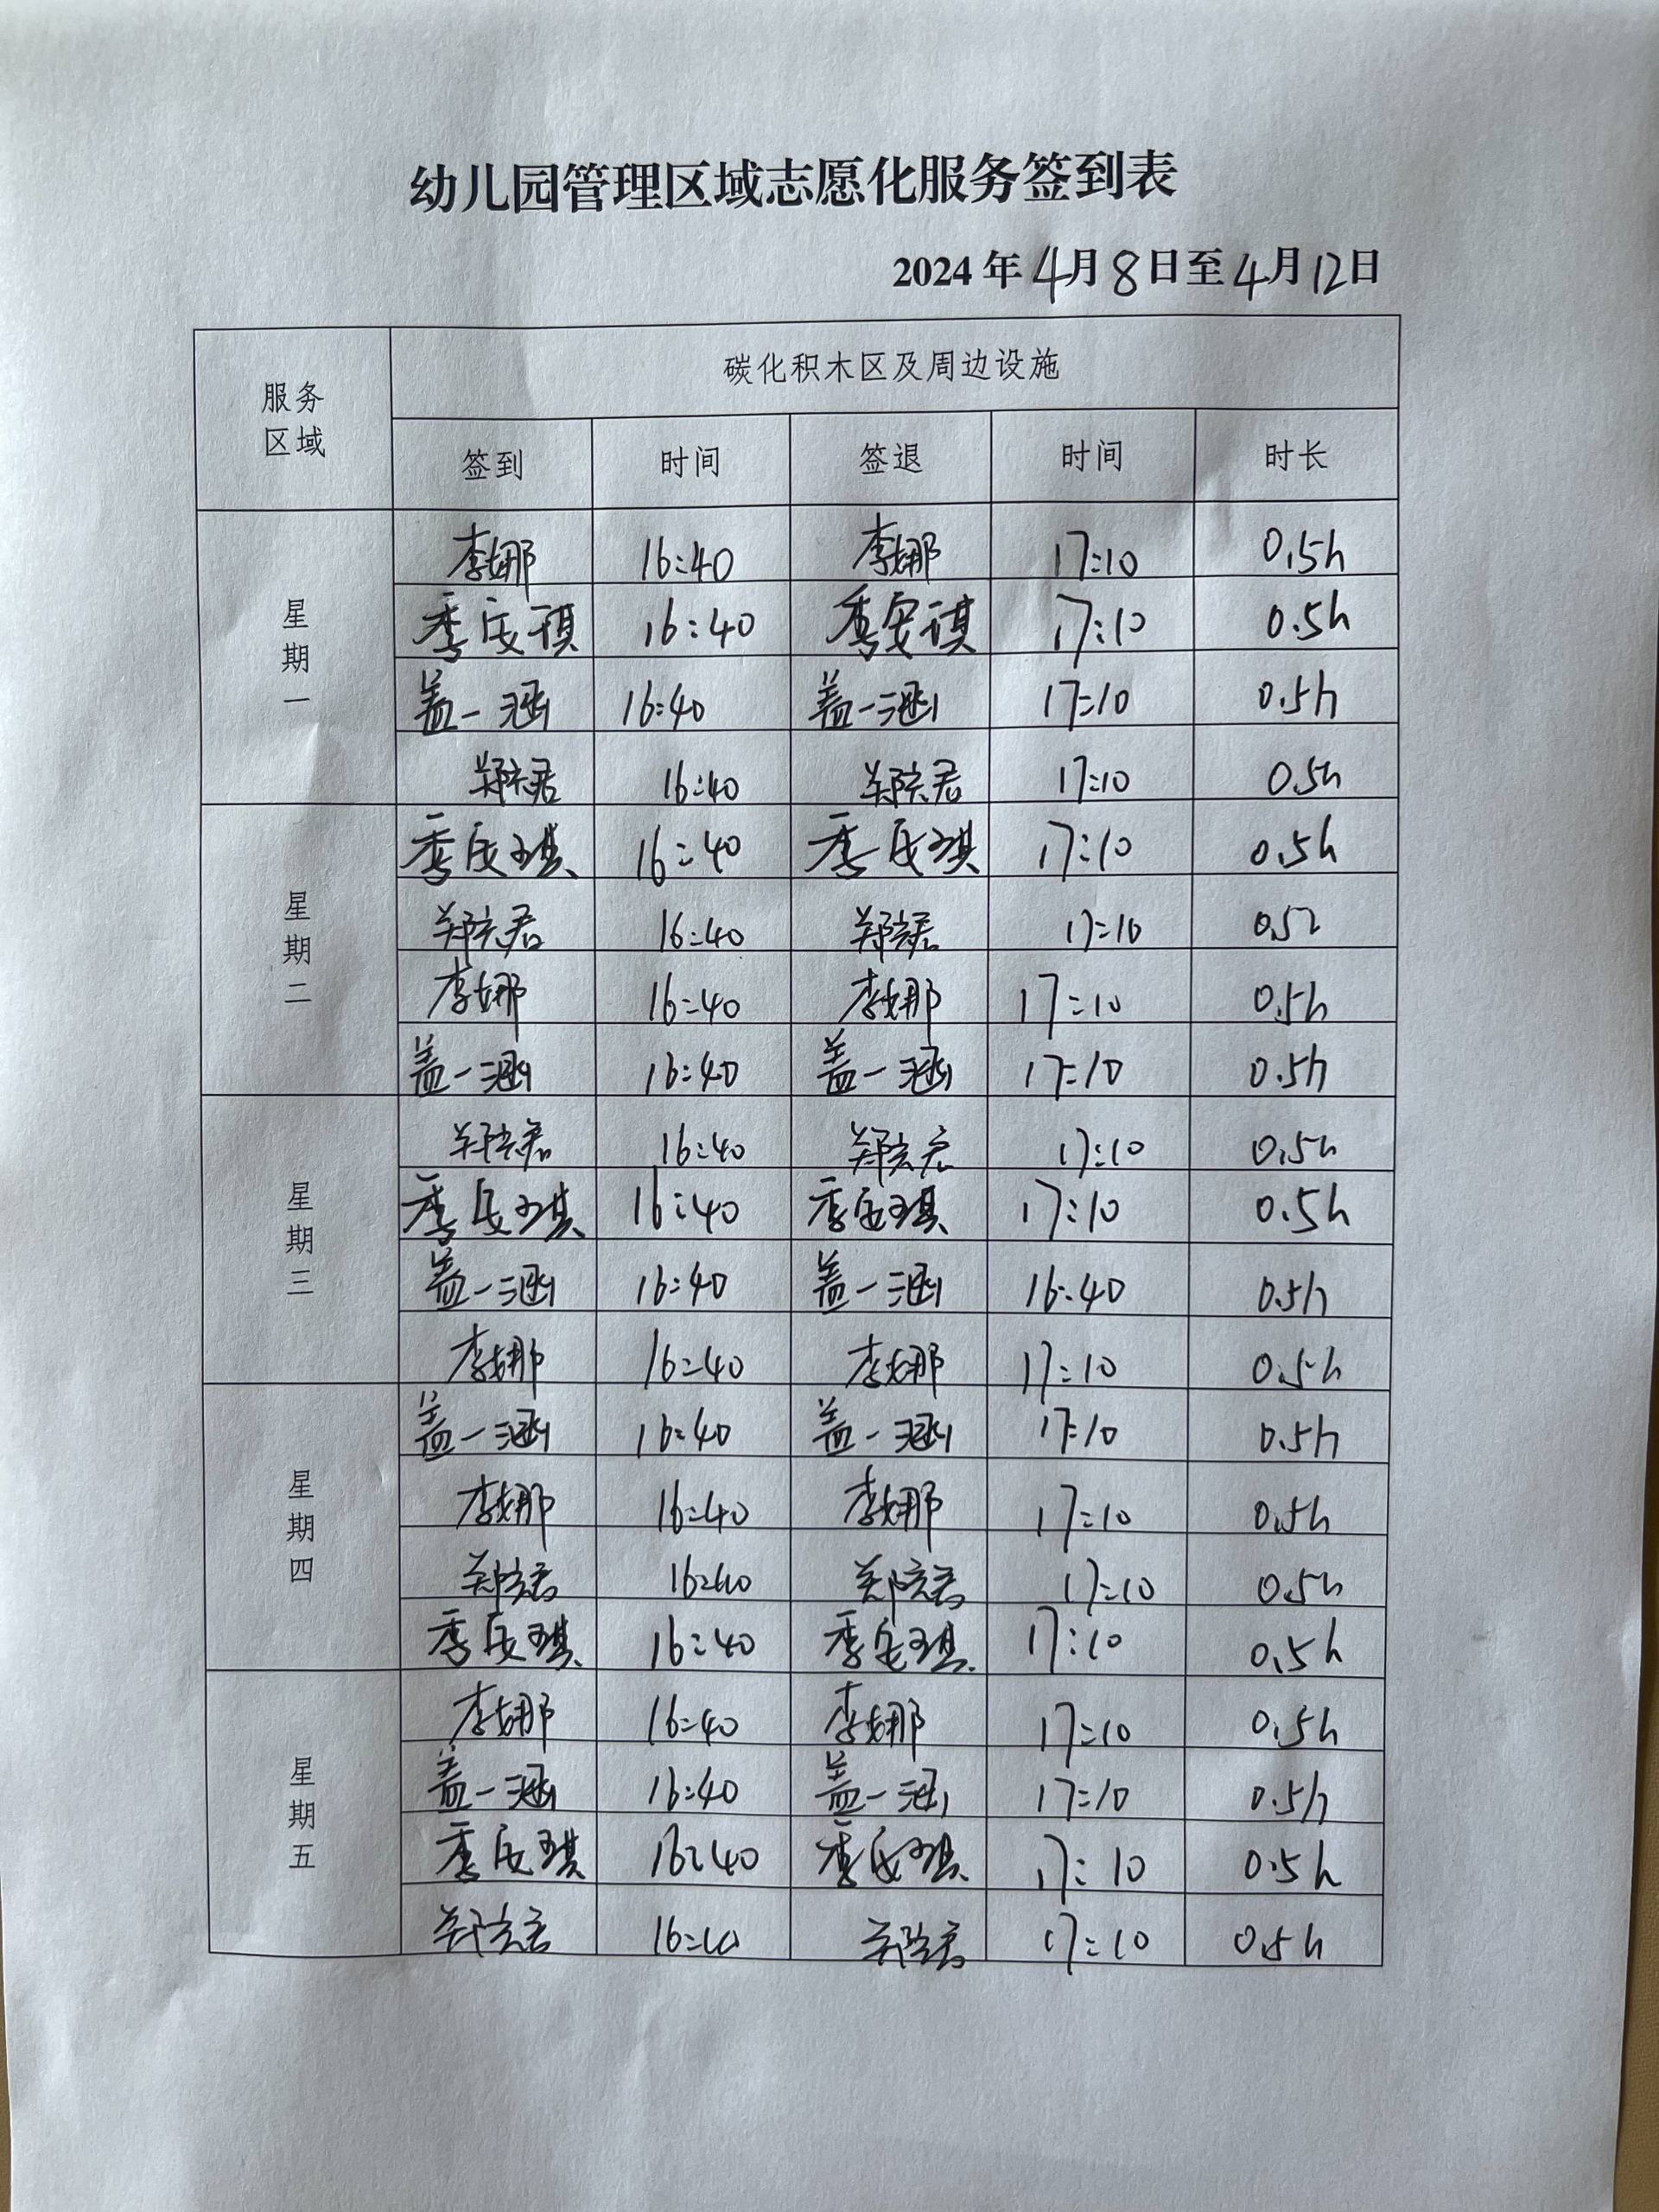 幼儿园管理区域志愿化服务签到表
2024年4月8日至4月12日
服务区域 碳化积木区及周边设施
签到 时间 签退 时间 时长
星期一
李娜 16:40 李娜 17:10 0.5h
季安琪 16:40 季安琪 17:10 0.5h
盖一涵 16:40 盖一涵 17:10 0.5h
郑宗君 16:40 郑宗君 17:10 0.5h
星期二
季安琪 16:40 季安琪 17:10 0.5h
郑宗君 16:40 郑宗君 17:10 0.5h
李娜 16:40 李娜 17:10 0.5h
盖一涵 16:40 盖一涵 17:10 0.5h
星期三
郑宗君 16:40 郑宗君 17:10 0.5h
季安琪 16:40 季安琪 17:10 0.5h
盖一涵 16:40 盖一涵 16:40 0.5h
李娜 16:40 李娜 17:10 0.5h
星期四
盖一涵 16:40 盖一涵 17:10 0.5h
李娜 16:40 李娜 17:10 0.5h
郑宗君 16:40 郑宗君 17:10 0.5h
季安琪 16:40 季安琪 17:10 0.5h
星期五
李娜 16:40 李娜 17:10 0.5h
盖一涵 16:40 盖一涵 17:10 0.5h
季安琪 16:40 季安琪 17:10 0.5h
郑宗君 16:40 郑宗君 17:10 0.5h